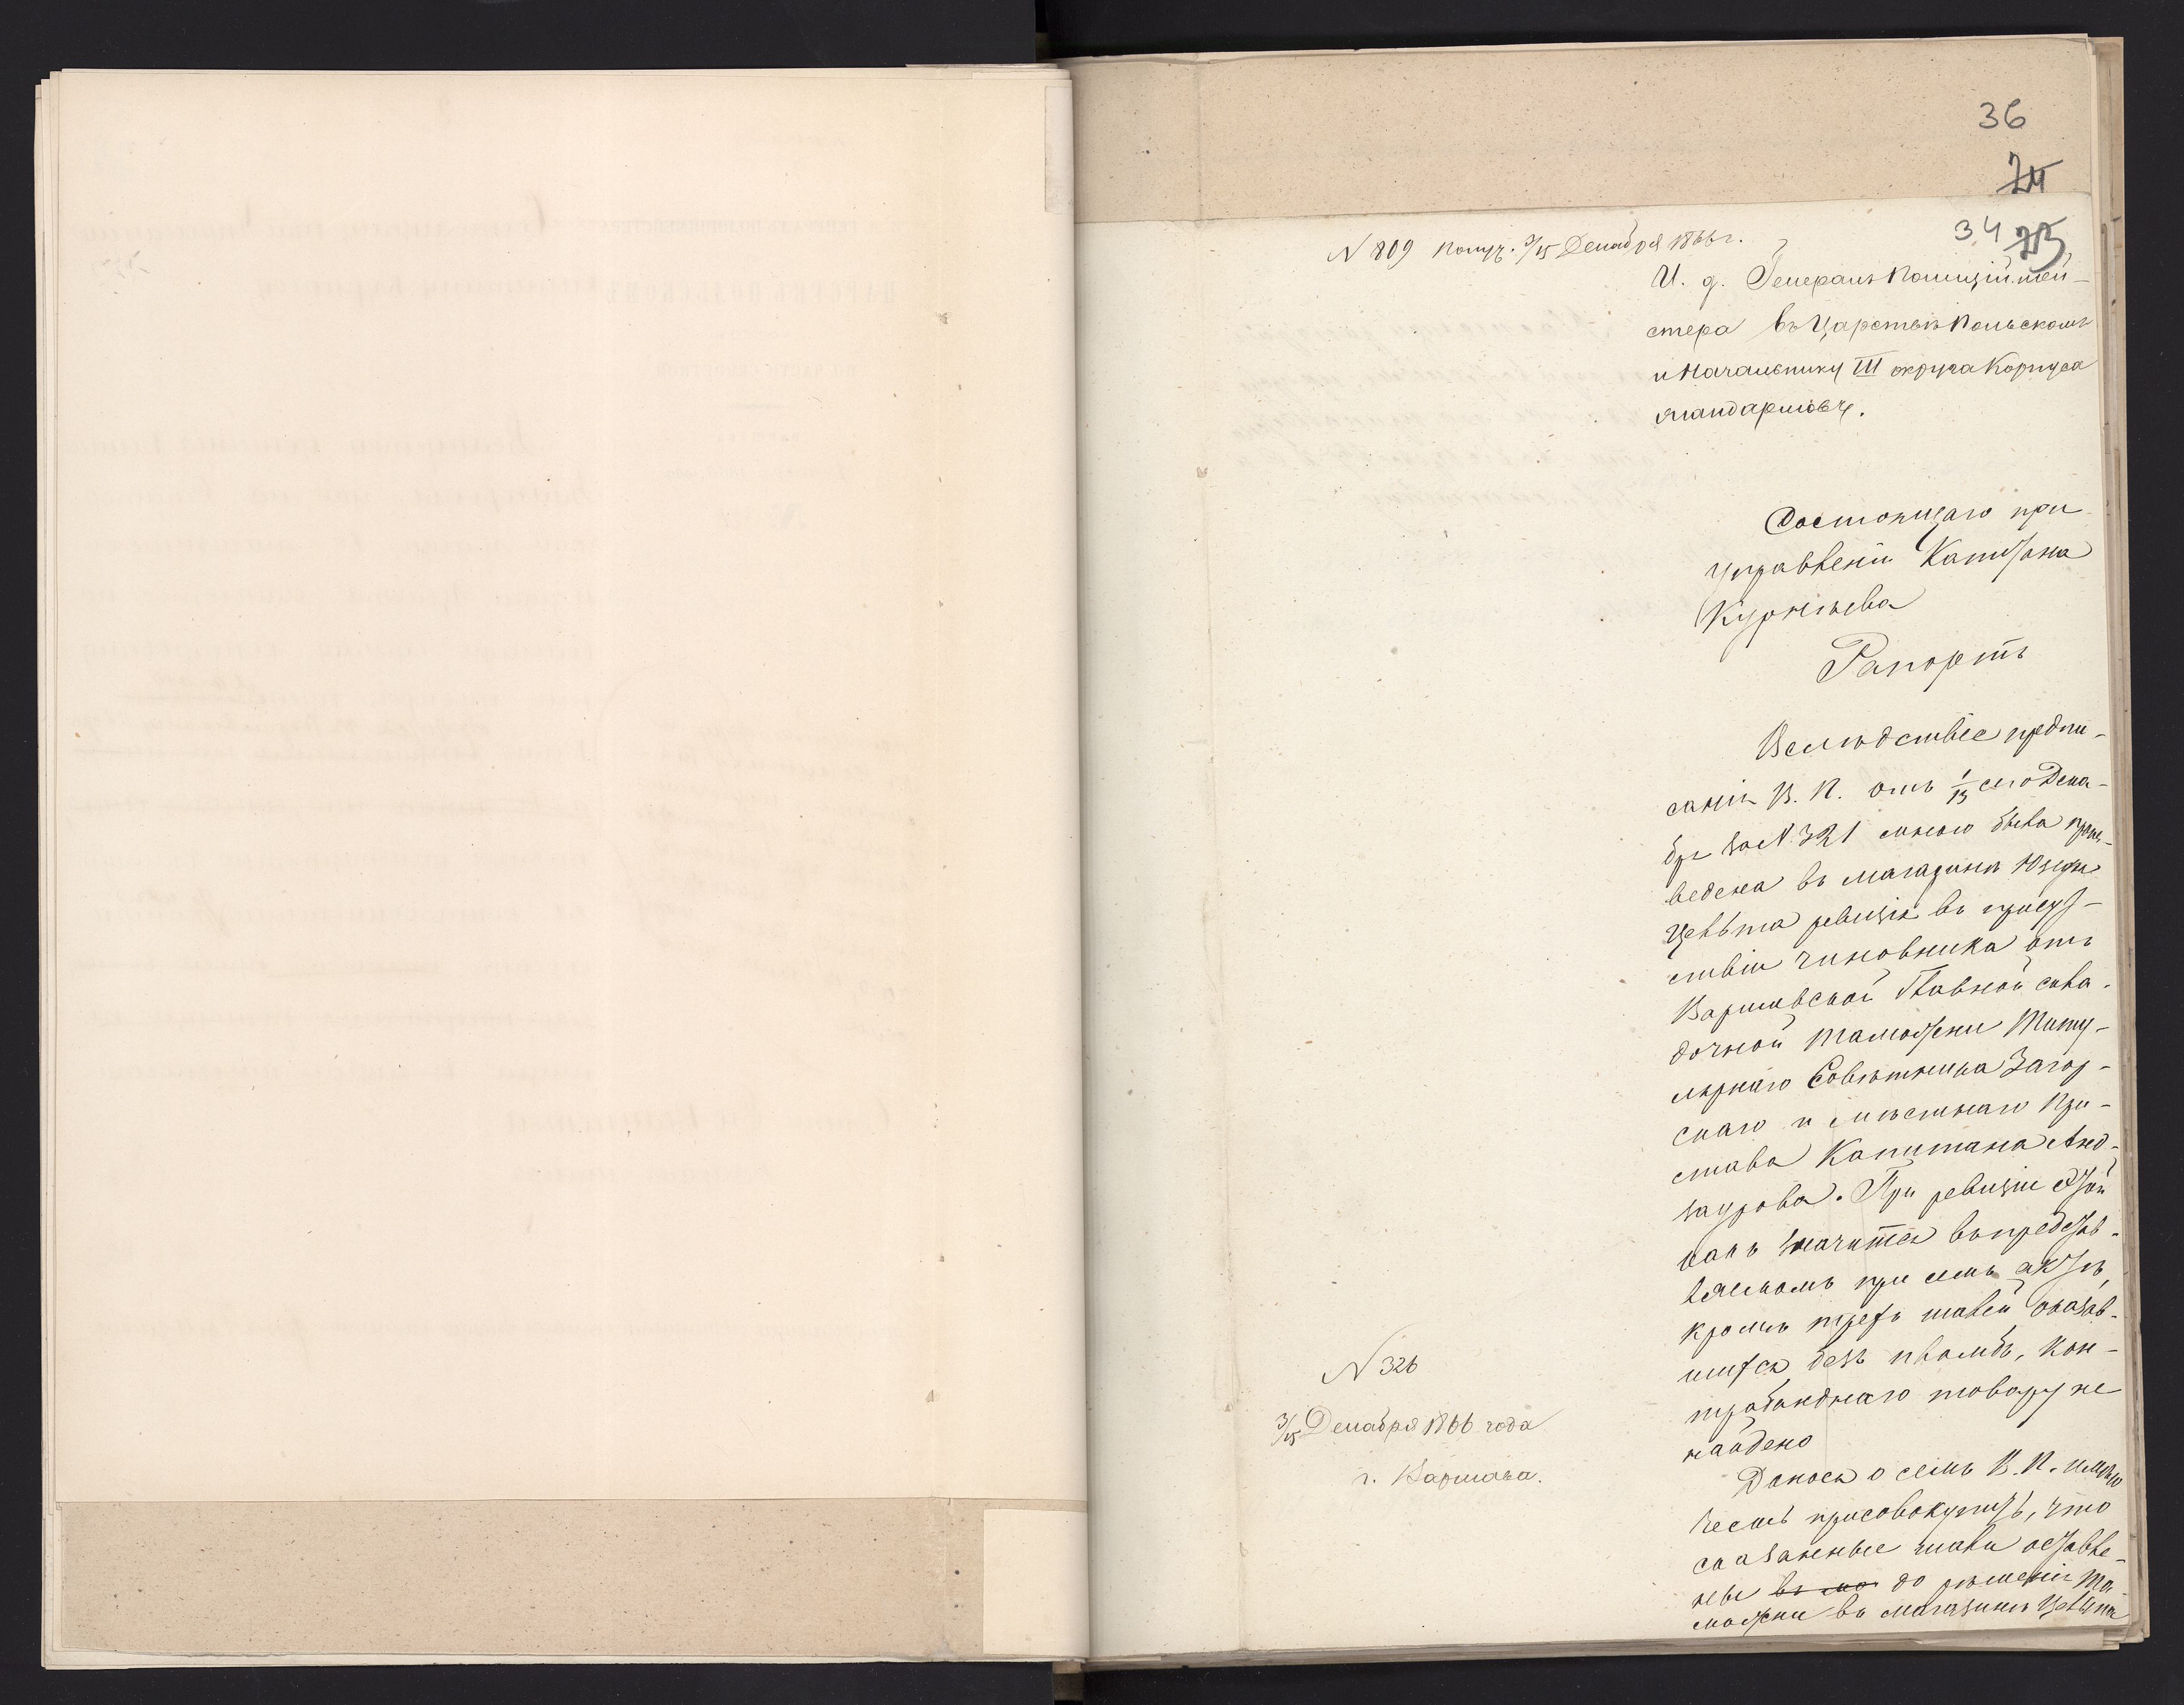 36
34
N 809 получ. 3/15 Декабря 1866 г.
И. д. Генералъ Полиціймей-
стера въ Царствѣ Польскомъ
и Начальнику III округа Корпуса
жандармовъ.
Состоящаго при
управленіи Капитана
Рапортъ
Вслѣдствіе предпи-
санія В. П. отъ 1/13 сего Дека-
бря за N 321 мною была произ-
ведена въ магазинѣ Юзефа
ревизія въ присут-
ствіи чиновника отъ
Варшавской Главной скла-
дочной таможни Титу-
лярнаго Совѣтника Загор-
скаго и мѣстнаго При-
става Капитана
При ревизіи этой
какъ значится въ представ-
ляемомъ при семъ актѣ,
кромѣ трехъ шалей оказав-
шихся безъ пломбъ, кон-
трабанднаго товару не
найдено
Донося о семъ В. П. имѣю
честь присовокупить, что
сказанные шали оставле-
ны до рѣшенія та-
можни въ магазинѣ
N 326
3/15 Декабря 1866 года
г. Варшава.